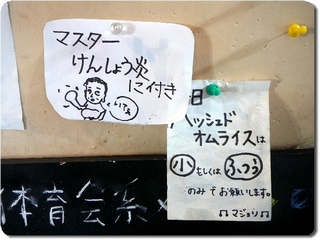 マスター
けんしょう炎
に付き
いてぇ
日
ハッシュド
オムライスは
小 もしくは ふつう
のみでお願いします。
マジョリ
体育会系